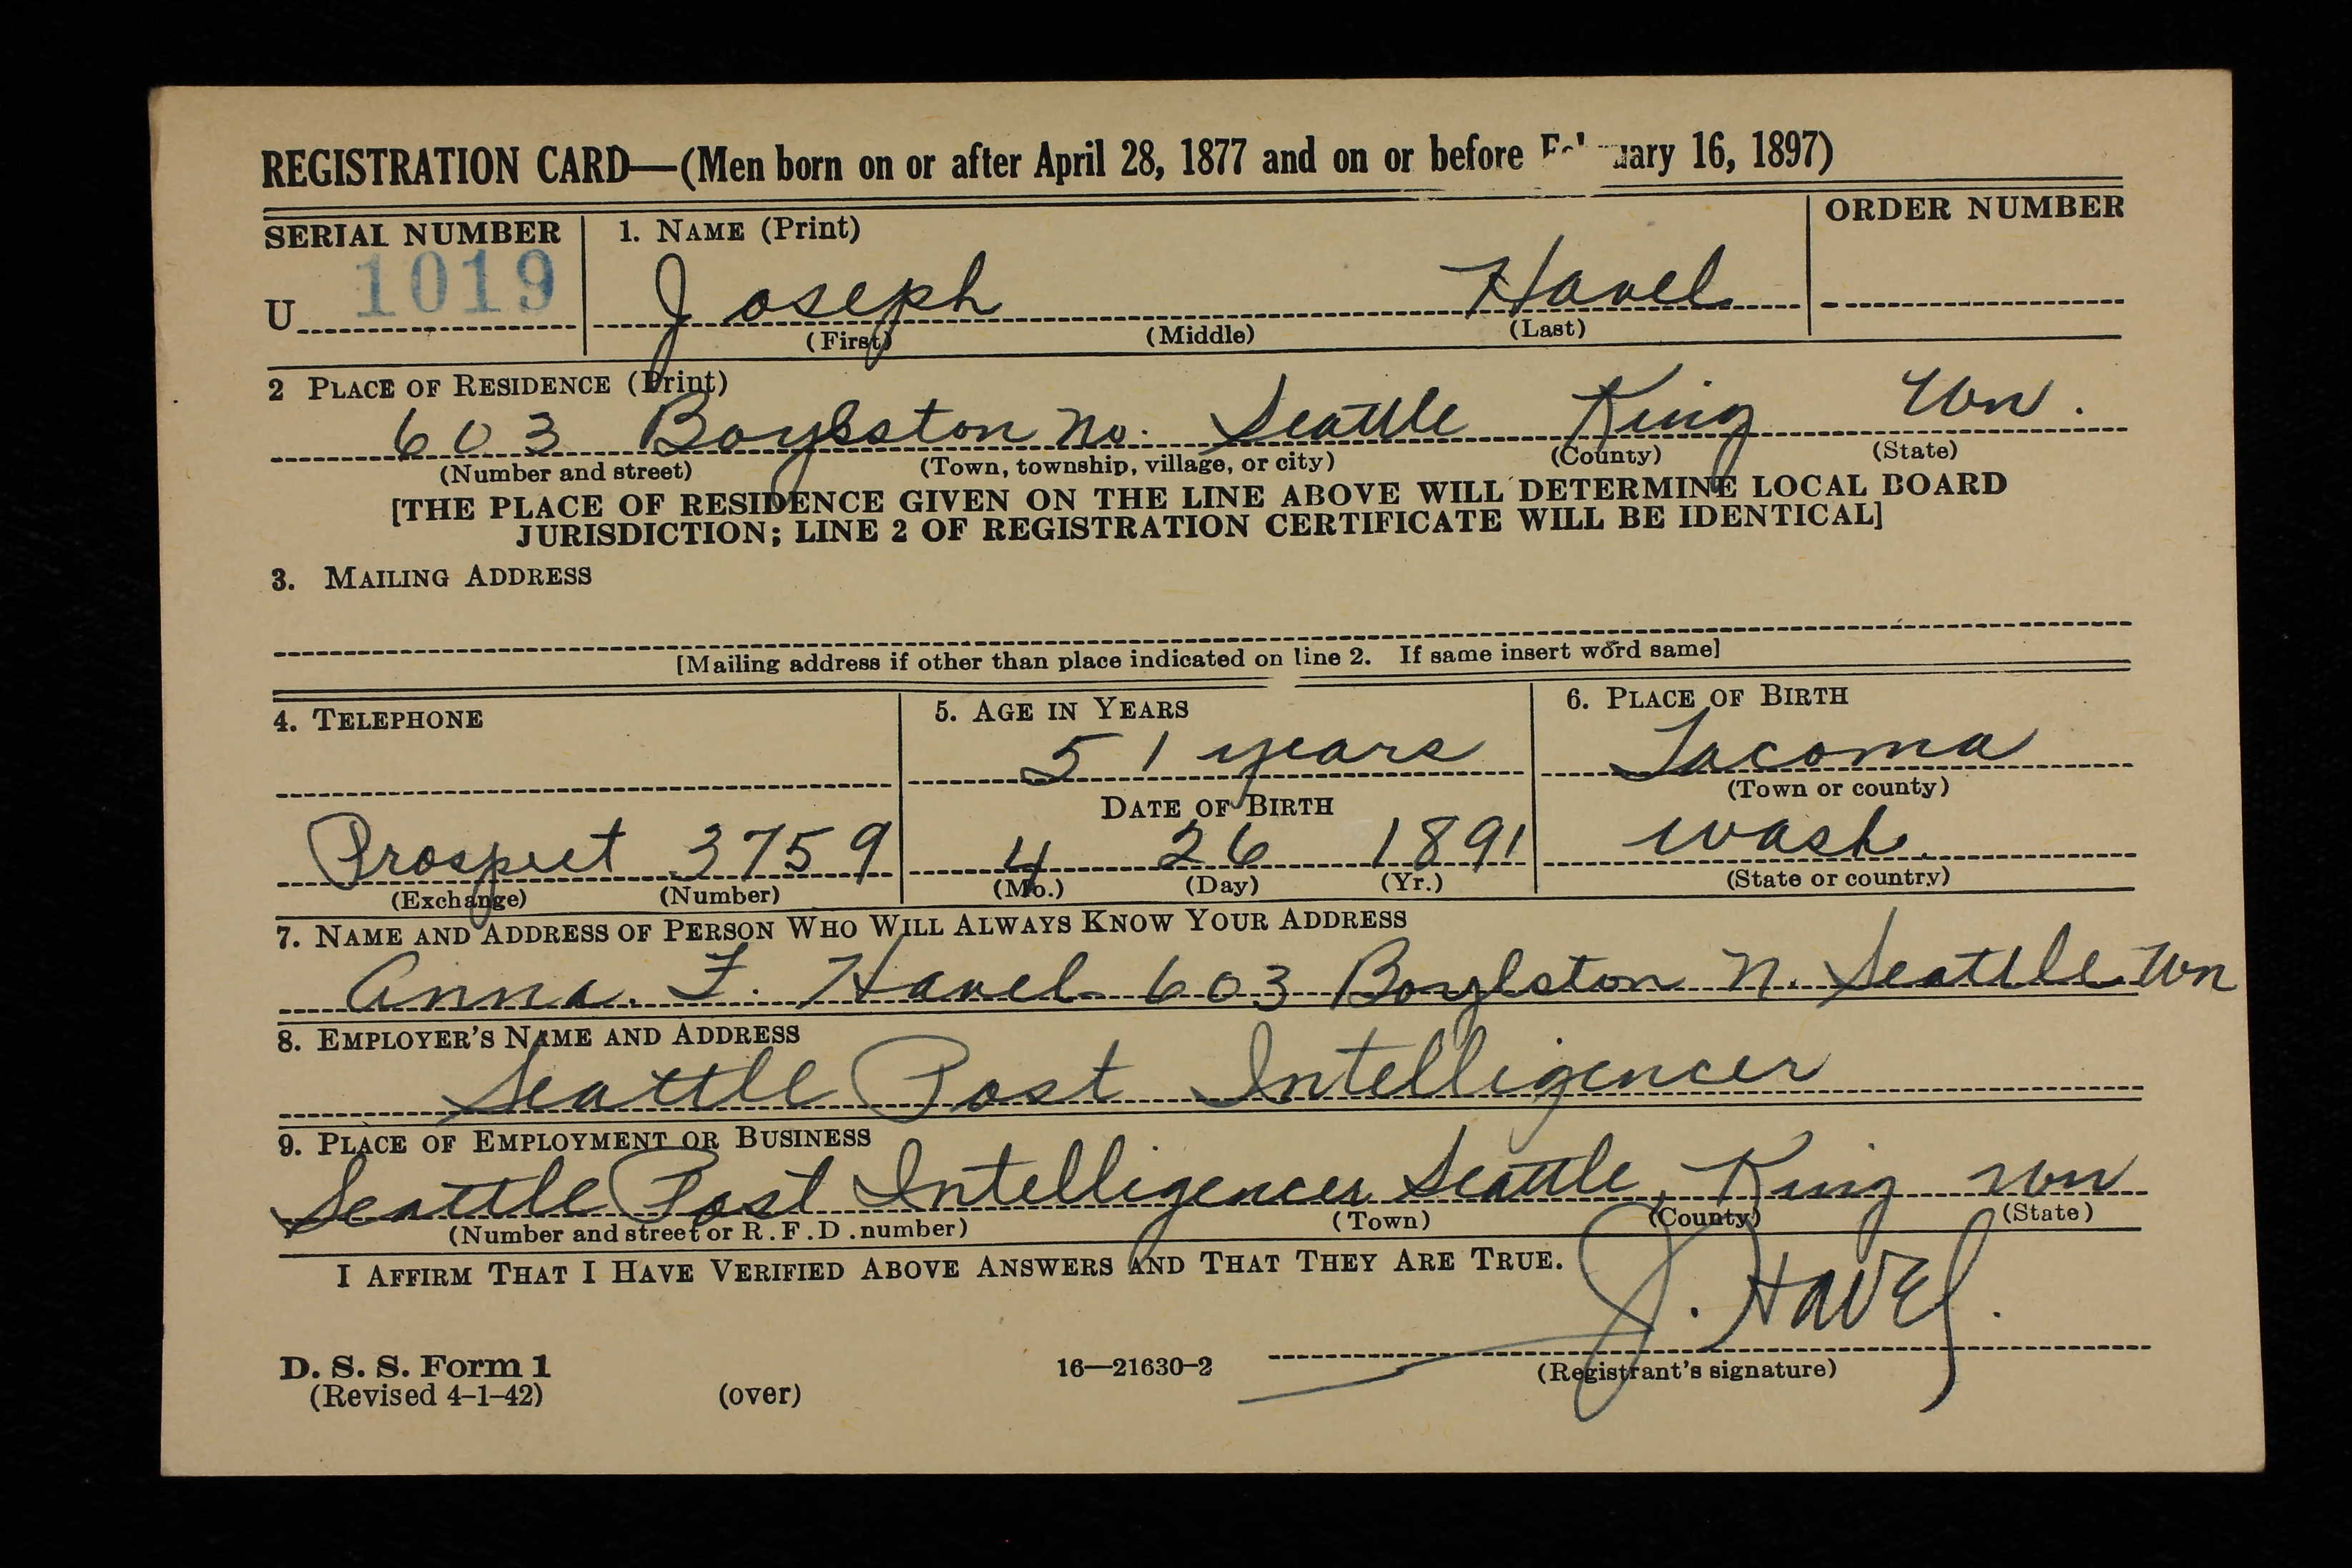 REGISTRATION CARD—(Men born on or after April 28, 1877 and on or before February 16, 1897)
SERIAL NUMBER 1. NAME (Print) ORDER NUMBER
U 1019 Joseph Havel
(First) (Middle) (Last)
2 PLACE OF RESIDENCE (Print)
603 Boylston No. Seattle King Wn.
(Number and street) (Town, township, village, or city) (County) (State)
[THE PLACE OF RESIDENCE GIVEN ON THE LINE ABOVE WILL DETERMINE LOCAL BOARD
JURISDICTION; LINE 2 OF REGISTRATION CERTIFICATE WILL BE IDENTICAL]
3. MAILING ADDRESS
[Mailing address if other than place indicated on line 2. If same insert word same]
4. TELEPHONE 5. AGE IN YEARS 6. PLACE OF BIRTH
51 years Tacoma
DATE OF BIRTH (Town or county)
Prospect 3759 4 26 1891 Wash.
(Exchange) (Number) (Mo.) (Day) (Yr.) (State or country)
7. NAME AND ADDRESS OF PERSON WHO WILL ALWAYS KNOW YOUR ADDRESS
Anna. F. Havel 603 Boylston N. Seattle Wn
8. EMPLOYER'S NAME AND ADDRESS
Seattle Post Intelligencer
9. PLACE OF EMPLOYMENT OR BUSINESS
Seattle Post Intelligencer Seattle, King Wn
(Number and street or R.F.D. number) (Town) (County) (State)
I AFFIRM THAT I HAVE VERIFIED ABOVE ANSWERS AND THAT THEY ARE TRUE.
J. Havel.
D. S. S. Form 1 16—21630-2 (Registrant's signature)
(Revised 4-1-42) (over)